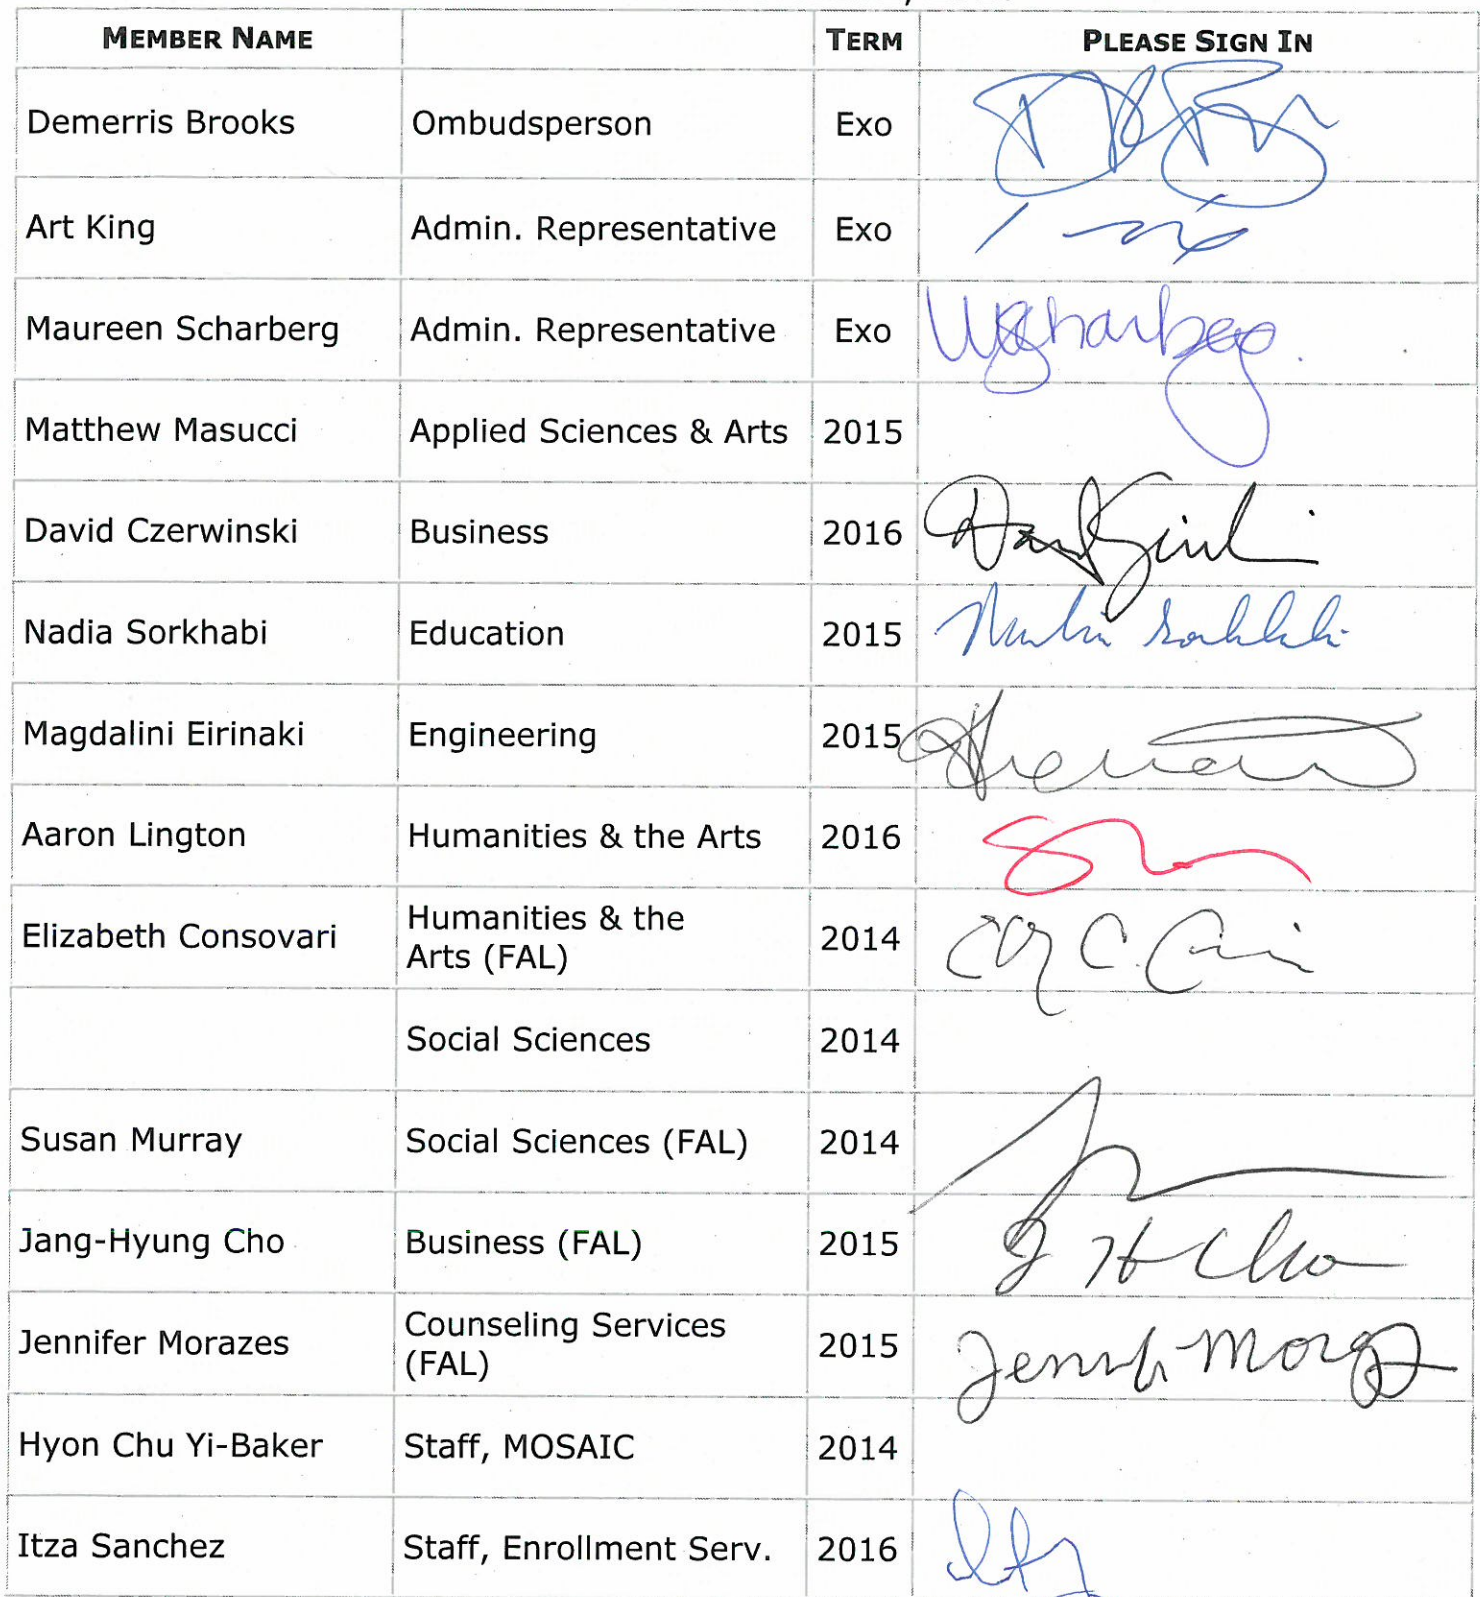 MEMBER NAME TERM PLEASE SIGN IN
Demerris Brooks Ombudsperson Exo
Art King Admin. Representative Exo
Maureen Scharberg Admin. Representative Exo
Matthew Masucci Applied Sciences & Arts 2015
David Czerwinski Business 2016
Nadia Sorkhabi Education 2015
Magdalini Eirinaki Engineering 2015
Aaron Lington Humanities & the Arts 2016
Elizabeth Consovari Humanities & the
Arts (FAL) 2014
Social Sciences 2014
Susan Murray Social Sciences (FAL) 2014
Jang-Hyung Cho Business (FAL) 2015 J H Cho
Jennifer Morazes Counseling Services
(FAL) 2015
Hyon Chu Yi-Baker Staff, MOSAIC 2014
Itza Sanchez Staff, Enrollment Serv. 2016